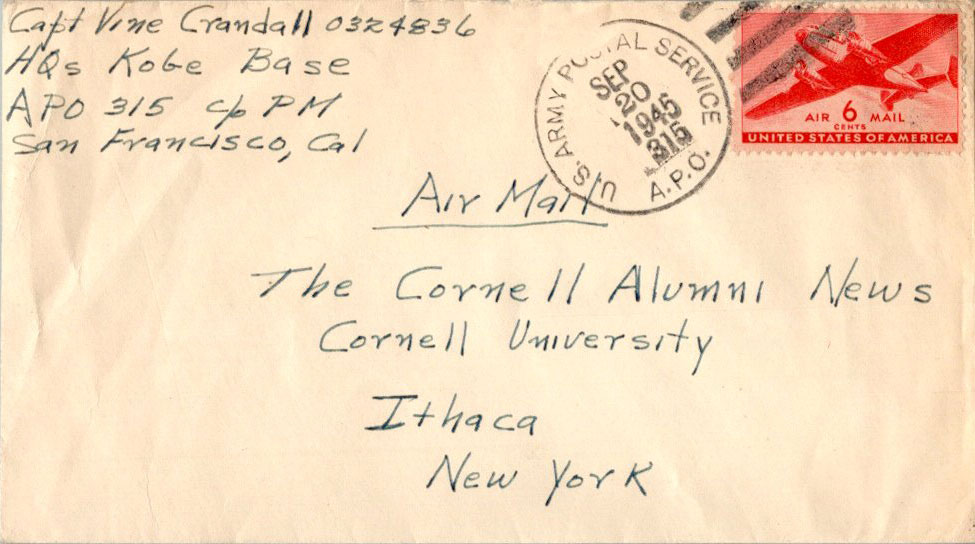 Capt Vine Crandall 0324836
HQs Kobe Base
APO 315 c/o PM
San Francisco, Cal
U.S. ARMY POSTAL SERVICE
A.P.O.
SEP
20
1945
315
AIR 6 MAIL
CENTS
UNITED STATES OF AMERICA
Air Mail
The Cornell Alumni News
Cornell University
Ithaca
New York